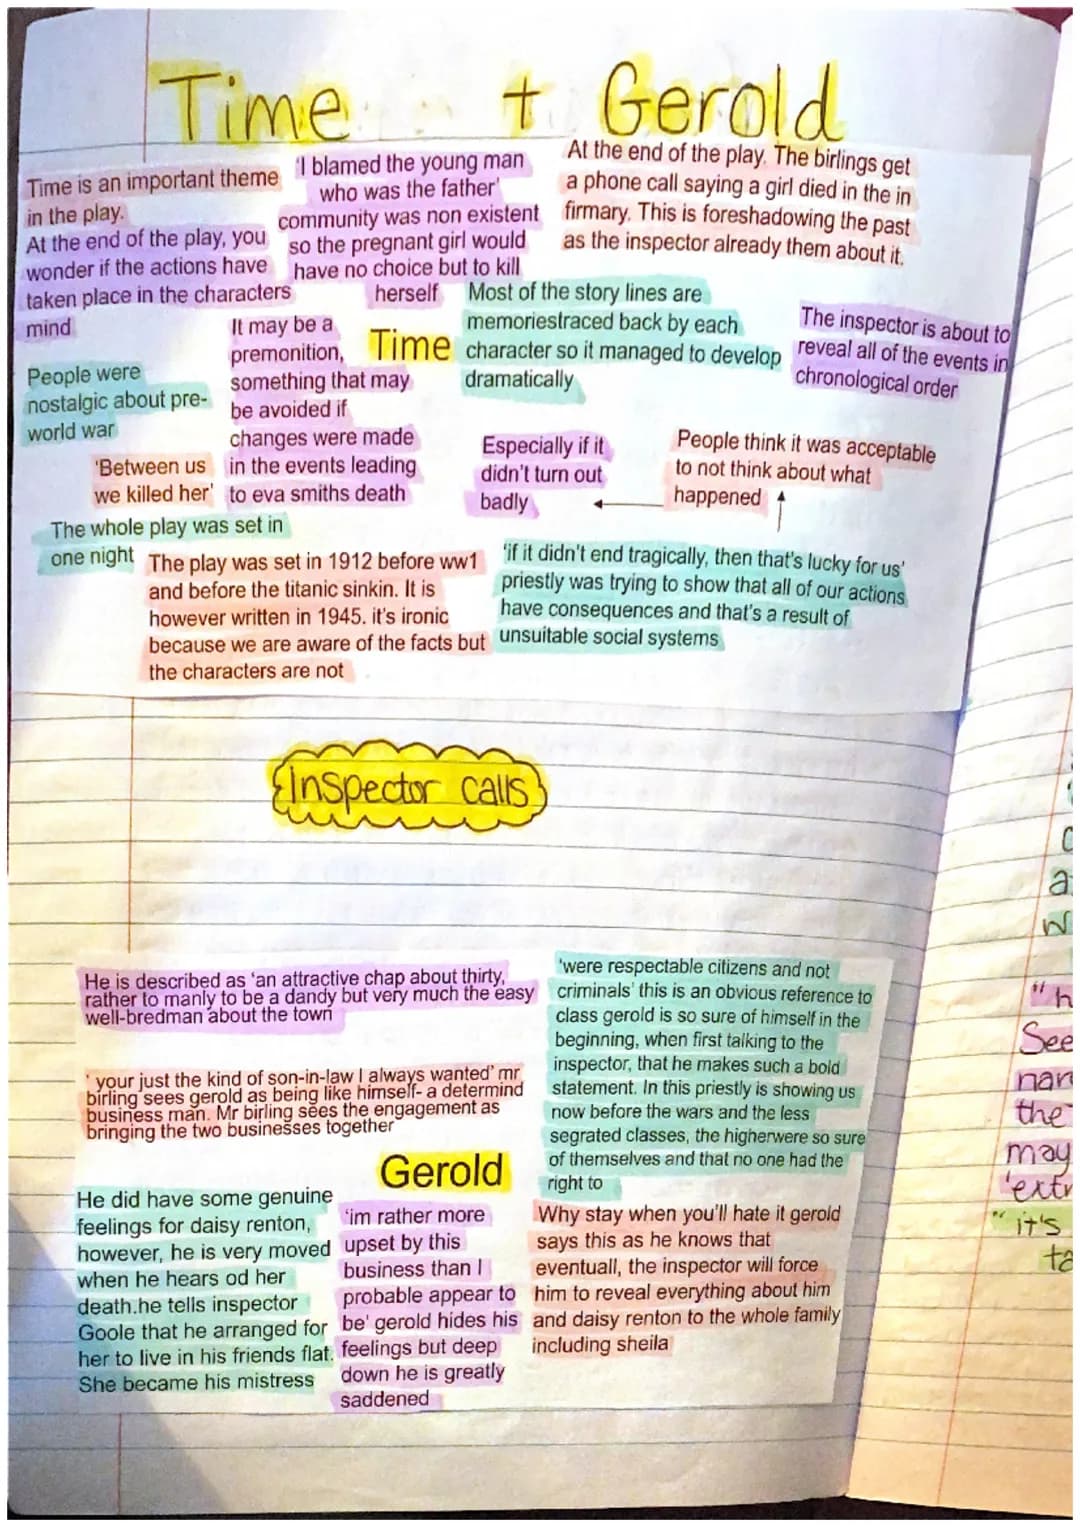 Time + Gerold
Time is an important theme
in the play.
At the end of the play, you
wonder if the actions have
taken place in the characters
mind
'I blamed the young man
who was the father'
community was non existent
so the pregnant girl would
have no choice but to kill
herself
At the end of the play. The birlings get
a phone call saying a girl died in the in
firmary. This is foreshadowing the past
as the inspector already them about it.
Time
Most of the story lines are
memoriestraced back by each
character so it managed to develop
dramatically
The inspector is about to
reveal all of the events in
chronological order
People were
nostalgic about pre-
world war
It may be a
premonition,
something that may
be avoided if
changes were made
in the events leading
to eva smiths death
'Between us
we killed her'
Especially if it
didn't turn out
badly
People think it was acceptable
to not think about what
happened
The whole play was set in
one night
The play was set in 1912 before ww1
and before the titanic sinkin. It is
however written in 1945. it's ironic
because we are aware of the facts but
the characters are not
'if it didn't end tragically, then that's lucky for us'
priestly was trying to show that all of our actions
have consequences and that's a result of
unsuitable social systems
Inspector calls
He is described as 'an attractive chap about thirty,
rather to manly to be a dandy but very much the easy
well-bredman about the town
' your just the kind of son-in-law I always wanted' mr
birling sees gerold as being like himself- a determind
business man. Mr birling sees the engagement as
bringing the two businesses together
'were respectable citizens and not
criminals' this is an obvious reference to
class gerold is so sure of himself in the
beginning, when first talking to the
inspector, that he makes such a bold
statement. In this priestly is showing us
now before the wars and the less
segrated classes, the higherwere so sure
of themselves and that no one had the
right to
Gerold
He did have some genuine
feelings for daisy renton,
however, he is very moved
when he hears od her
death.he tells inspector
Goole that he arranged for
her to live in his friends flat.
She became his mistress
'im rather more
upset by this
business than I
probable appear to
be' gerold hides his
feelings but deep
down he is greatly
saddened
Why stay when you'll hate it gerold
says this as he knows that
eventuall, the inspector will force
him to reveal everything about him
and daisy renton to the whole family
including sheila
"h
See
nar
the
may
'extr
"it's
ta